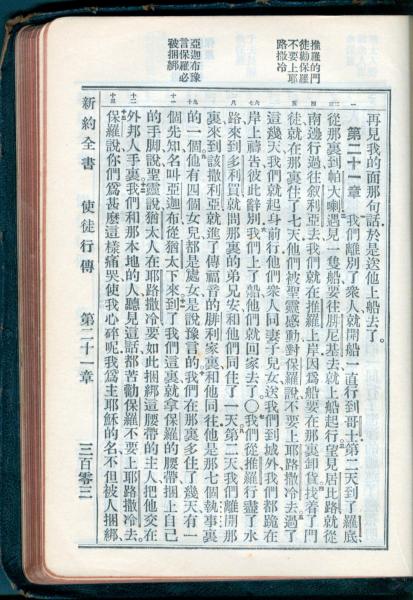 推羅的門
徒勸保羅
不要上耶
路撒冷
亞迦布豫
言保羅必
被捆綁
再見我的面那句話於是送他上船去了。
第二十一章 我們離別了衆人就開船一直行到哥士第二天到了羅底
從那裏到帕大喇遇見一隻船要往腓尼基去就上船起行望見居比路就從
南邊行過往叙利亞去我們就在推羅上岸因爲船要在那裏卸貨找着了門
徒就在那裏住了七天他們被聖靈感動對保羅說不要上耶路撒冷去過了
這幾天我們就起身前行他們衆人同妻子兒女送我們到城外我們都跪在
岸上禱告彼此辭別我們上了船他們就回家去了〇我們從推羅行盡了水
路來到多利買就問那裏的弟兄安和他們同住了一天第二天我們離開那
裏來到該撒利亞就進了傳福音的腓利家裏和他同住他是那七個執事裏
的一個他有四個女兒都是處女是說豫言的我們在那裏多住了幾天有一
個先知名叫亞迦布從猶太下來到了我們這裏就拿保羅的腰帶捆上自己
的手脚說聖靈說猶太人在耶路撒冷要如此捆綁這腰帶的主人把他交在
外邦人手裏我們和那本地的人聽見這話都苦勸保羅不要上耶路撒冷去
保羅說你們爲甚麽這樣痛哭使我心碎呢我爲主耶穌的名不但被人捆綁
新約全書 使徒行傳 第二十一章 三百零三